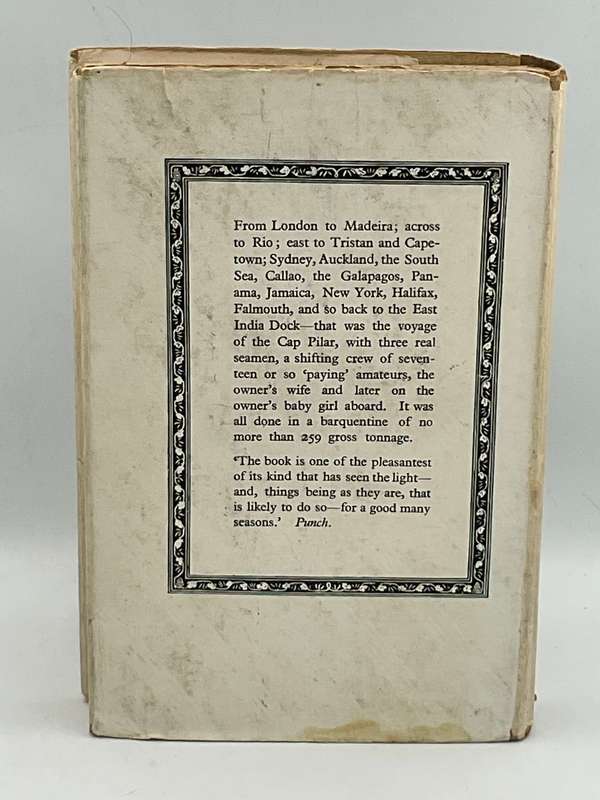 From London to Madeira; across
to Rio; east to Tristan and Cape-
town; Sydney, Auckland, the South
Sea, Callao, the Galapagos, Pan-
ama, Jamaica, New York, Halifax,
Falmouth, and so back to the East
India Dock—that was the voyage
of the Cap Pilar, with three real
seamen, a shifting crew of seven-
teen or so ‘paying’ amateurs, the
owner's wife and later on the
owner's baby girl aboard. It was
all done in a barquentine of no
more than 259 gross tonnage.
‘The book is one of the pleasantest
of its kind that has seen the light—
and, things being as they are, that
is likely to do so—for a good many
seasons.’ Punch.